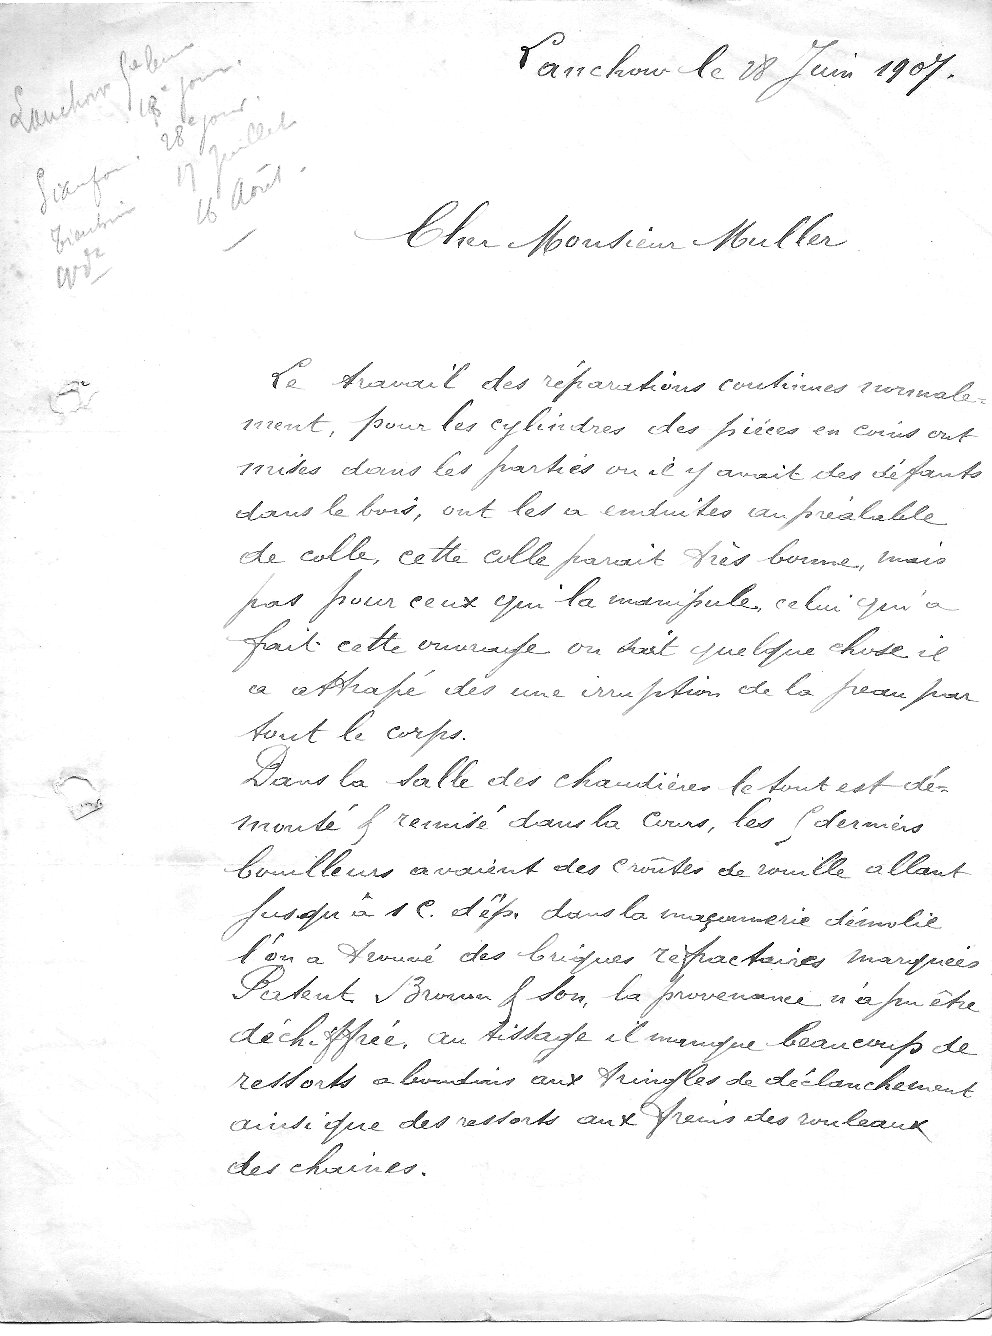 Lanchow le 28 Juin 1907.
Lanchow
18e jour.
28e jour.
17 Juillet
16 Août.
Cher Monsieur Muller
Le travail des réparations continues normale=
ment, pour les cylindres des piéces en coins ont
mises dans les partiés ou il y avait des défauts
dans le bois, ont les a enduites au préalable
de colle, cette colle parait très bonne, mais
pas pour ceux qui la manipule, celui qui a
fait cette ouvrage on sait quelque chose il
a attrapé des une irruption de la peau par
tout le corps.
Dans la salle des chaudières le tout est dé=
monté & remisé dans la Cours, les derniérs
bouilleurs avaient des croûtes de rouille allant
jusqu'à 1 C. d'ép. dans la maçonnerie démolie
l'on a trouvé des briques réfractaires marquées
Patent Brown & Son, la provenance n'a pu être
déchiffrée, au tissage il manque beaucoup de
ressorts a boudins aux tringles de déclanchement
ainsi que des ressorts aux freins des rouleaux
des chaines.